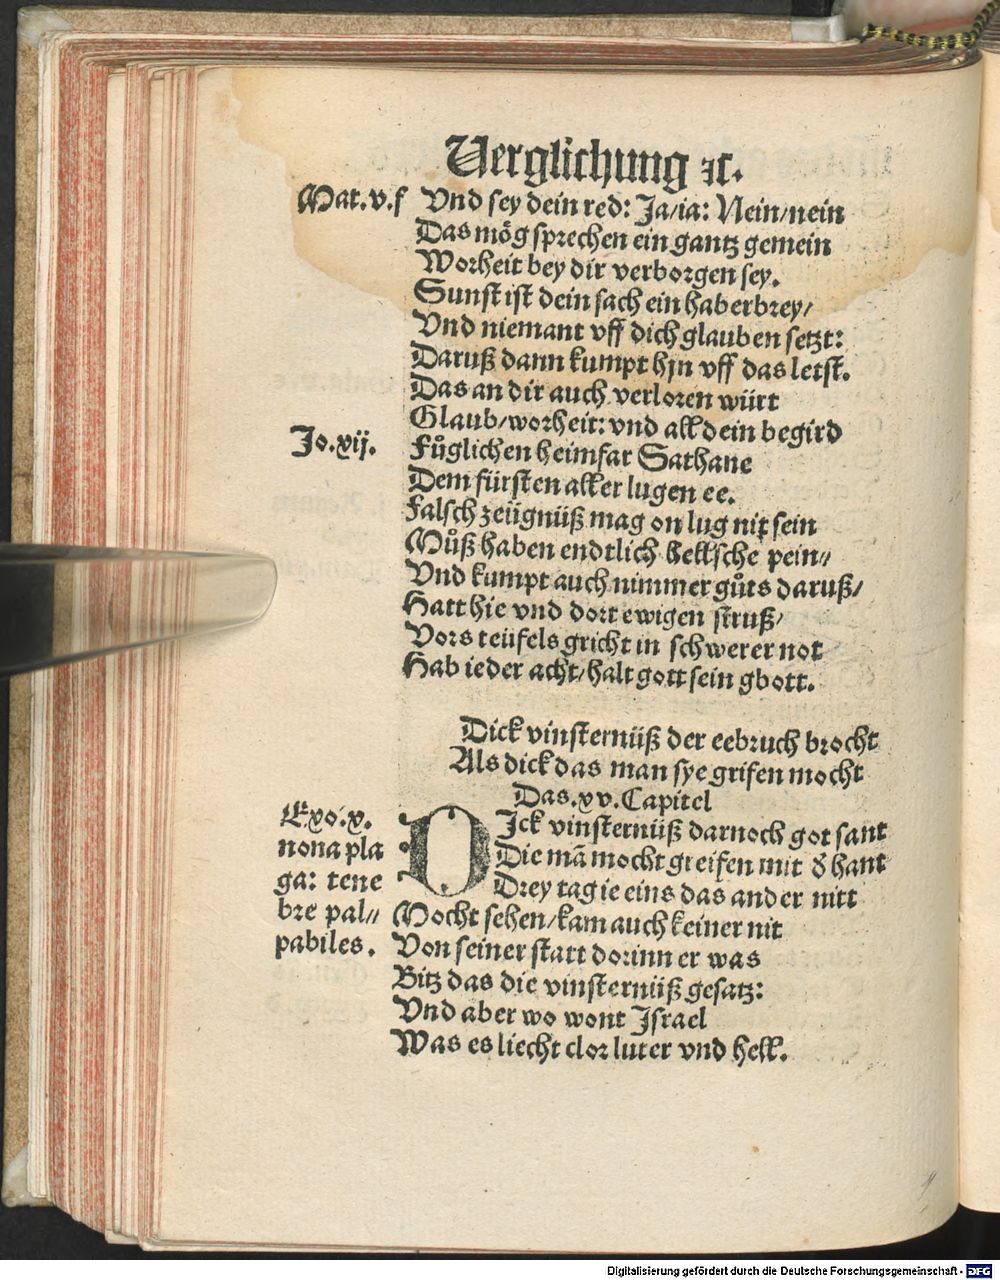 Verglichung ꝛc.
Mat.v.f Vnd sey dein red: Ja/ia: Nein/nein
Das mög sprechen ein gantz gemein
Worheit bey dir verborgen sey.
Sunst ist dein sach ein haberbrey/
Vnd niemant vff dich glauben setzt:
Daruß dann kumpt hjn vff das letst.
Das an dir auch verloren würt
Glaub/worheit: vnd all dein begird
Jo.xij. Fůglichen heimfar Sathane
Dem fürsten aller lugen ee.
Falsch zeügnüß mag on lug nix sein
Můß haben endtlich hellsche pein//
Vnd kumpt auch nimmer gůts daruß/
Hatt hie vnd dort ewigen struß/
Vors teüfels gricht in schwerer not
Hab ieder acht/halt gott sein gbott.
Dick vinsternüß der eebruch brocht
Als dick das man sye grifen mocht
Das.xv.Capitel
Exo.x.
nona pla
ga: tene
bre pal//
pabiles.
DJck vinsternüß darnoch got sant
Die mã mocht greifen mit d hant
Drey tag ie eins das ander nitt
Mocht sehen/kam auch keiner nit
Von seiner statt dorinn er was
Bitz das die vinsternüß gesatz:
Vnd aber wo wont Jsrael
Was es liecht clor luter vnd hell.
Digitalisierung gefördert durch die Deutsche Forschungsgemeinschaft - DFG